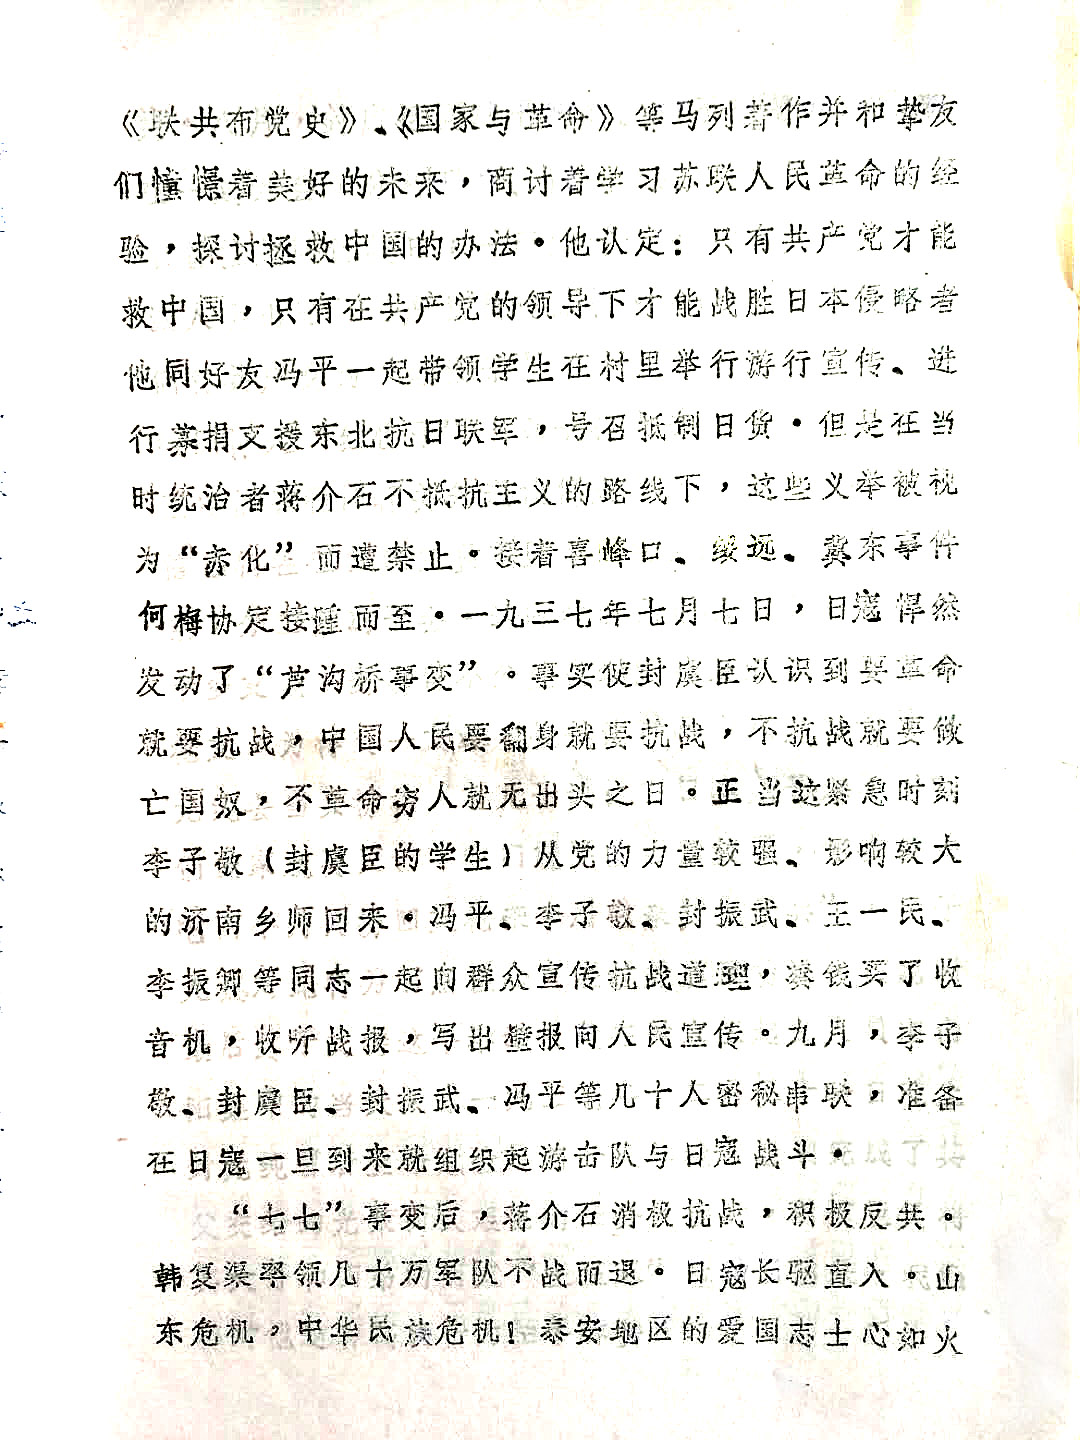 《联共布党史》、《国家与革命》等马列著作并和挚友
们憧憬着美好的未来，商讨着学习苏联人民革命的经
验，探讨拯救中国的办法。他认定：只有共产党才能
救中国，只有在共产党的领导下才能战胜日本侵略者
他同好友冯平一起带领学生在村里举行游行宣传、进
行募捐支援东北抗日联军，号召抵制日货。但是在当
时统治者蒋介石不抵抗主义的路线下，这些义举被视
为“赤化”而遭禁止。接着喜峰口、绥远、冀东事件
何梅协定接踵而至。一九三七年七月七日，日寇悍然
发动了“芦沟桥事变”。事实使封虞臣认识到要革命
就要抗战，中国人民要翻身就要抗战，不抗战就要做
亡国奴，不革命穷人就无出头之日。正当这紧急时刻
李子敬（封虞臣的学生）从党的力量较强、影响较大
的济南乡师回来。冯平、李子敬、封振武、王一民、
李振卿等同志一起向群众宣传抗战道理，凑钱买了收
音机，收听战报，写出壁报向人民宣传。九月，李子
敬、封虞臣、封振武、冯平等几十人密秘串联，准备
在日寇一旦到来就组织起游击队与日寇战斗。
“七七”事变后，蒋介石消极抗战，积极反共。
韩复渠率领几十万军队不战而退。日寇长驱直入。山
东危机，中华民族危机！泰安地区的爱国志士心如火